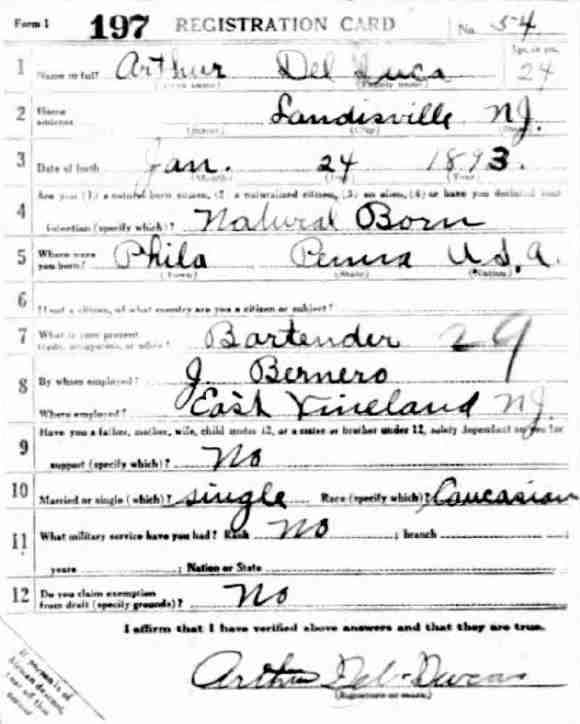 Form 1 197 REGISTRATION CARD No. 54
Age, in yrs.
1 Name in full Arthur Del Luca 24
(Given name) (Family name)
2 Home address Landisville NJ.
(Street) (City) (State)
3 Date of birth Jan. 24 1893.
(Month) (Day) (Year)
Are you (1) a natural born citizen, (2) a naturalized citizen, (3) an alien, (4) or have you declared your
4 intention (specify which)? Natural Born
5 Where were you born? Phila Penna U.S.A.
(Town) (State) (Nation)
6 If not a citizen, of what country are you a citizen or subject?
7 What is your present trade, occupation, or office? Bartender 29
8 By whom employed? J. Bernero
Where employed? East Vineland NJ.
9 Have you a father, mother, wife, child under 12, or a sister or brother under 12, solely dependent on you for
support (specify which)? No
10 Married or single (which)? single Race (specify which)? Caucasian
11 What military service have you had? Rank No ; branch ;
years ; Nation or State
12 Do you claim exemption from draft (specify grounds)? No
I affirm that I have verified above answers and that they are true.
Arthur Del
(Signature or mark)
If person is of
African descent,
tear off this
corner